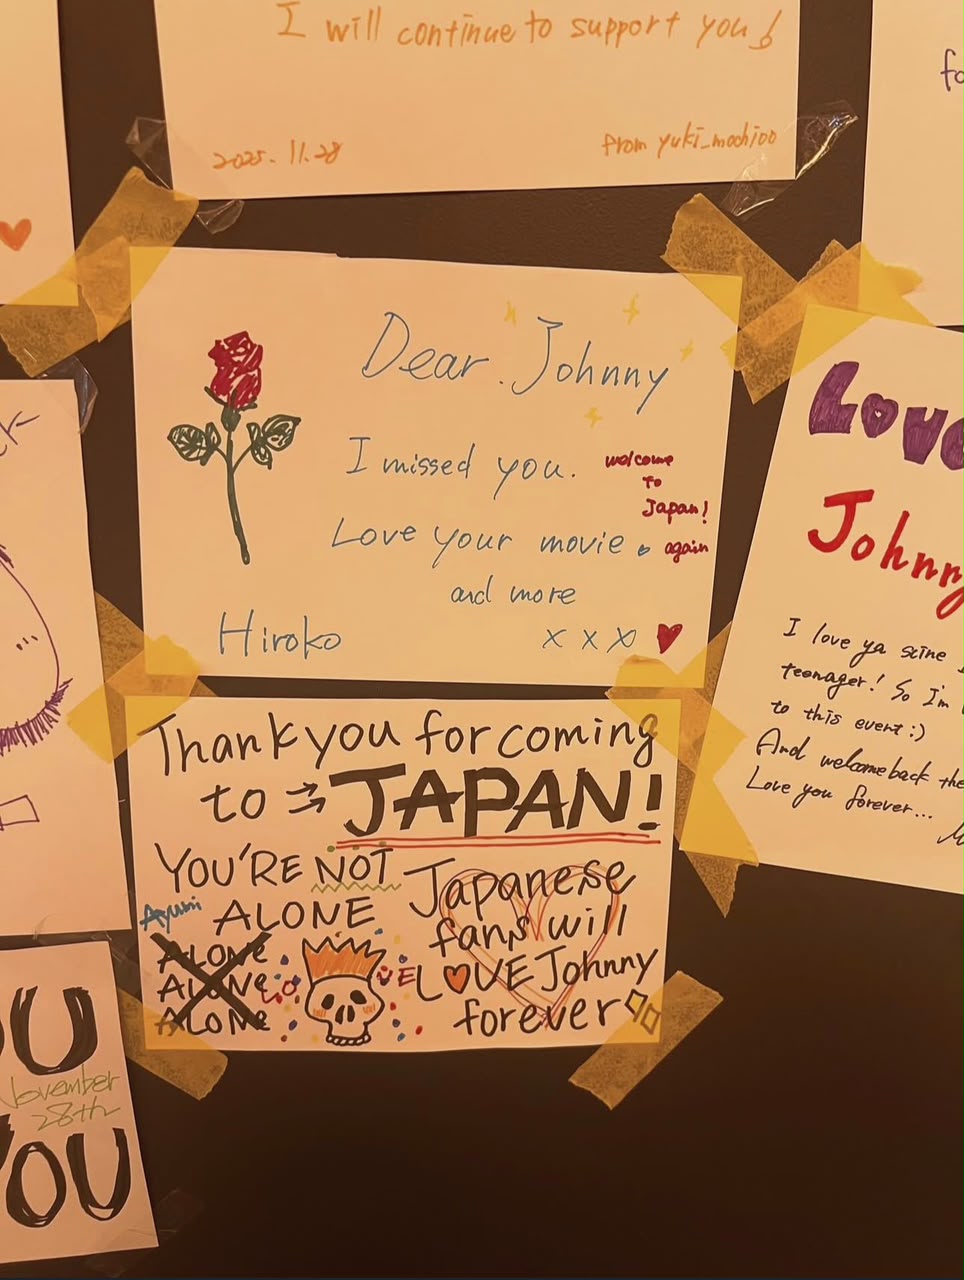 I will continue to support you!
2025. 11. 28
from yuki_mochioo
fo
Dear. Johnny
I missed you.
Love your movie.
and more
welcome
to
Japan!
again
Hiroko
x x x
Love
Johnny
I love ya scine
teenager! So I'm
to this event:)
And welcome back the
Love you forever...
Thank you for coming
to JAPAN!
YOU'RE NOT
ALONE
Ayumi
ALONE
ALONE
ALONE
LOVE
Japanese
fans will
LOVE Johnny
forever
OU
November
28th
YOU